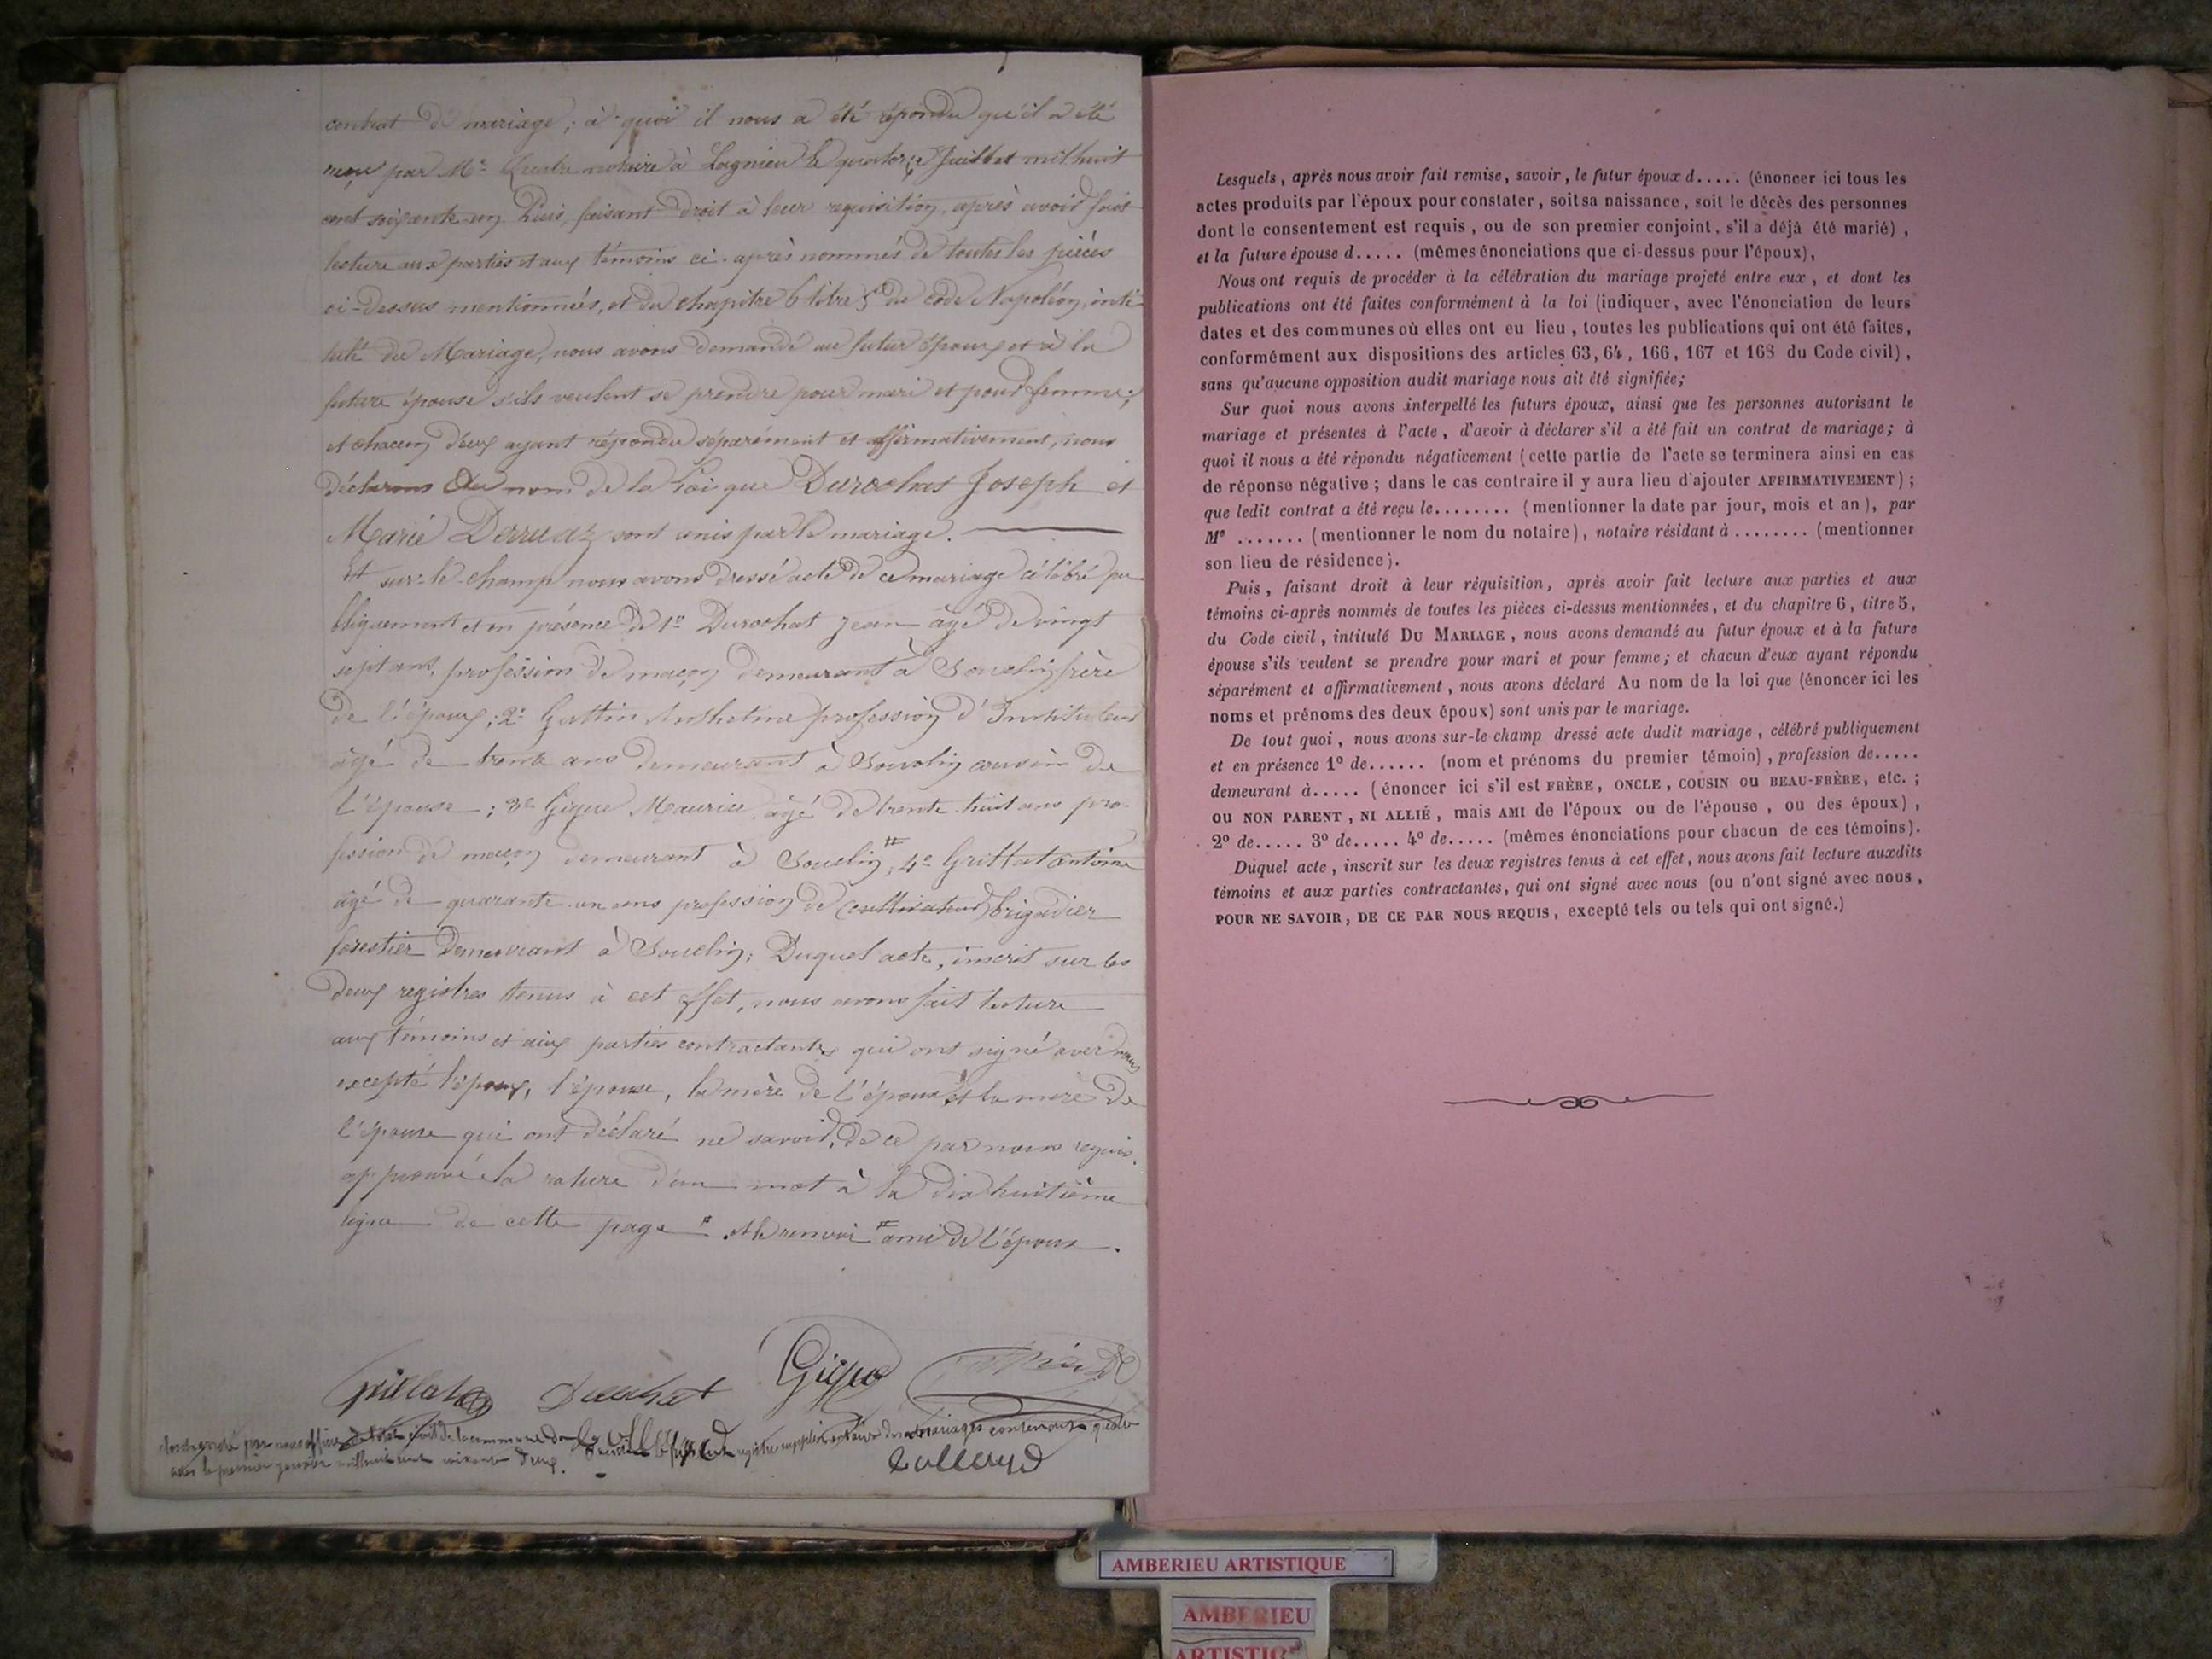 contrat de mariage; à quoi il nous a été répondu qu'il a été
reçu par Me notaire à Lagnieu le quatorze Juillet mil huit
cent soixante-un Puis, faisant droit à leur requisition, après avoir fait
lecture aux parties et aux témoins ci-après nommés de toutes les pièces
ci-dessus mentionnées, et du chapitre 6 titre 5e du code Napoléon, inti-
tulé du Mariage, nous avons demandé au futur époux et à la
future épouse s'ils veulent se prendre pour mari et pour femme;
et chacun d'eux ayant répondu séparément et affirmativement, nous
déclarons Au nom de la Loi que Durochat Joseph et
Marie Derruaz sont unis par le mariage.
Et sur-le-champ nous avons dressé acte de ce mariage célébré pu-
bliquement et en présence de 1° Durochat Jean âgé de vingt
sept ans, profession de maçon demeurant à Souclin frère
de l'époux; 2° Guttin Anthelme profession d'Instituteur
âgé de trente ans demeurant à Souclin cousin de
l'épouse; 3° Gigue Maurice âgé de trente-huit ans pro-
fession de maçon demeurant à Souclin #; 4° Grillat antoine
âgé de quarante-un ans profession de (cultivateur) brigadier
forestier demeurant à Souclin; Duquel acte, inscrit sur les
deux registres tenus à cet effet, nous avons fait lecture
aux témoins et aux parties contractantes qui ont signé avec nous
excepté l'époux, l'épouse, la mère de l'époux et la mère de
l'épouse qui ont déclaré ne savoir, de ce par nous requis.
approuvé la rature d'un mot à la dix huitième
ligne de cette page # et le renvoi # ami de l'époux.
Grillat Durochat Gigue
clos et arrêté par nous officier de l'état civil de la commune de registre supplémentaire des mariages contenant quatre
actes le premier janvier mil huit cent soixante deux.
Lesquels, après nous avoir fait remise, savoir, le futur époux d..... (énoncer ici tous les
actes produits par l'époux pour constater, soit sa naissance, soit le décès des personnes
dont le consentement est requis, ou de son premier conjoint, s'il a déjà été marié),
et la future épouse d..... (mêmes énonciations que ci-dessus pour l'époux),
Nous ont requis de procéder à la célébration du mariage projeté entre eux, et dont les
publications ont été faites conformément à la loi (indiquer, avec l'énonciation de leurs
dates et des communes où elles ont eu lieu, toutes les publications qui ont été faites,
conformément aux dispositions des articles 63, 64, 166, 167 et 168 du Code civil),
sans qu'aucune opposition audit mariage nous ait été signifiée;
Sur quoi nous avons interpellé les futurs époux, ainsi que les personnes autorisant le
mariage et présentes à l'acte, d'avoir à déclarer s'il a été fait un contrat de mariage; à
quoi il nous a été répondu négativement (cette partie de l'acte se terminera ainsi en cas
de réponse négative; dans le cas contraire il y aura lieu d'ajouter AFFIRMATIVEMENT);
que ledit contrat a été reçu le........ (mentionner la date par jour, mois et an), par
Me ....... (mentionner le nom du notaire), notaire résidant à ........ (mentionner
son lieu de résidence).
Puis, faisant droit à leur réquisition, après avoir fait lecture aux parties et aux
témoins ci-après nommés de toutes les pièces ci-dessus mentionnées, et du chapitre 6, titre 5,
du Code civil, intitulé DU MARIAGE, nous avons demandé au futur époux et à la future
épouse s'ils veulent se prendre pour mari et pour femme; et chacun d'eux ayant répondu
séparément et affirmativement, nous avons déclaré Au nom de la loi que (énoncer ici les
noms et prénoms des deux époux) sont unis par le mariage.
De tout quoi, nous avons sur-le-champ dressé acte dudit mariage, célébré publiquement
et en présence 1° de...... (nom et prénoms du premier témoin), profession de.....
demeurant à..... (énoncer ici s'il est FRÈRE, ONCLE, COUSIN OU BEAU-FRÈRE, etc.;
OU NON PARENT, NI ALLIÉ, mais AMI de l'époux ou de l'épouse, ou des époux),
2° de..... 3° de..... 4° de..... (mêmes énonciations pour chacun de ces témoins).
Duquel acte, inscrit sur les deux registres tenus à cet effet, nous avons fait lecture auxdits
témoins et aux parties contractantes, qui ont signé avec nous (ou n'ont signé avec nous,
POUR NE SAVOIR, DE CE PAR NOUS REQUIS, excepté tels ou tels qui ont signé.)
AMBERIEU ARTISTIQUE
AMBERIEU
ARTISTIQUE